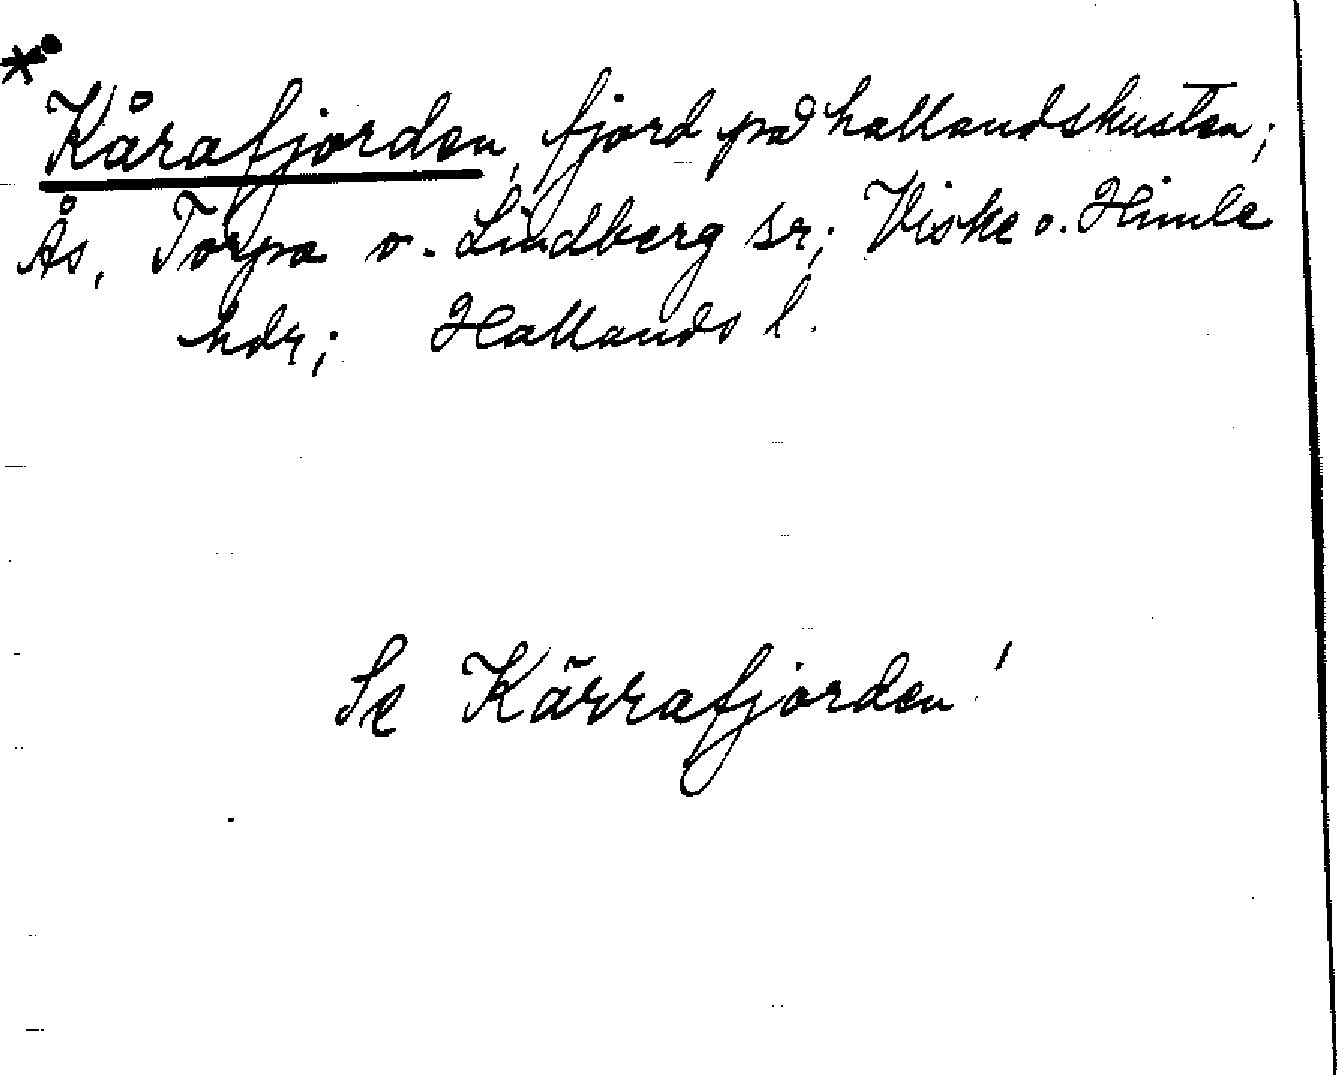 * Kårafjorden, fjord på hallandskusten;
Ås, Torpa o. Lindberg sr; Viske o. Himle
hdr; Hallands l.
Se Kärrafjorden!